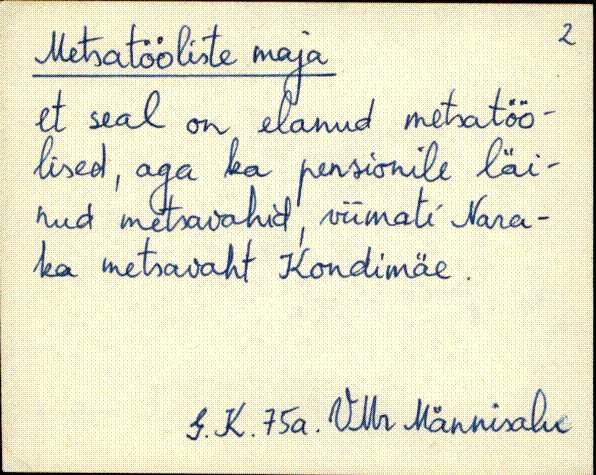 2
Metsatööliste maja
et seal on elanud metsatöö-
lised, aga ka pensionile läi-
nud metsavahid, viimati Nara-
ka metsavaht Kondimäe.
G.K. 75a. VMr Männisalu